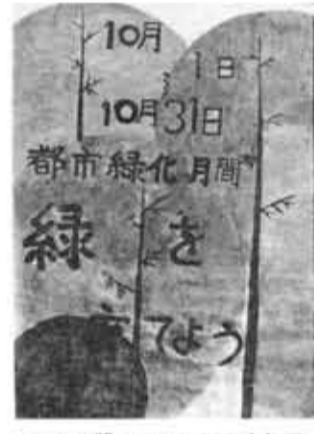 10月
1日
〜
10月31日
都市緑化月間
緑を
育てよう